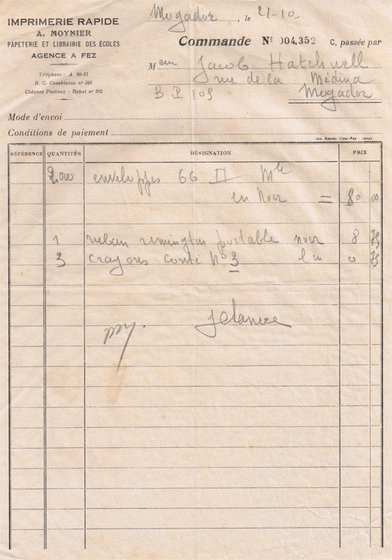 IMPRIMERIE RAPIDE
A. MOYNIER
PAPETERIE ET LIBRAIRIE DES ÉCOLES
AGENCE A FEZ
Téléphone : A 09-21
R. C. Casablanca n° 505
Chèques Postaux : Rabat n° 992
Mogador, le 21-10
Commande N° 004,352 C, passée par
M eur Jacob Hatchwell
rue de la Médina
B P 105 Mogador
Mode d'envoi
Conditions de paiement
RÉFÉRENCE QUANTITÉS DÉSIGNATION PRIX
2.000 enveloppes 66 II Mle
en Noir = 80 00
1 ruban remington portable noir 8 75
3 crayons conté N° 3 l'un 0 75